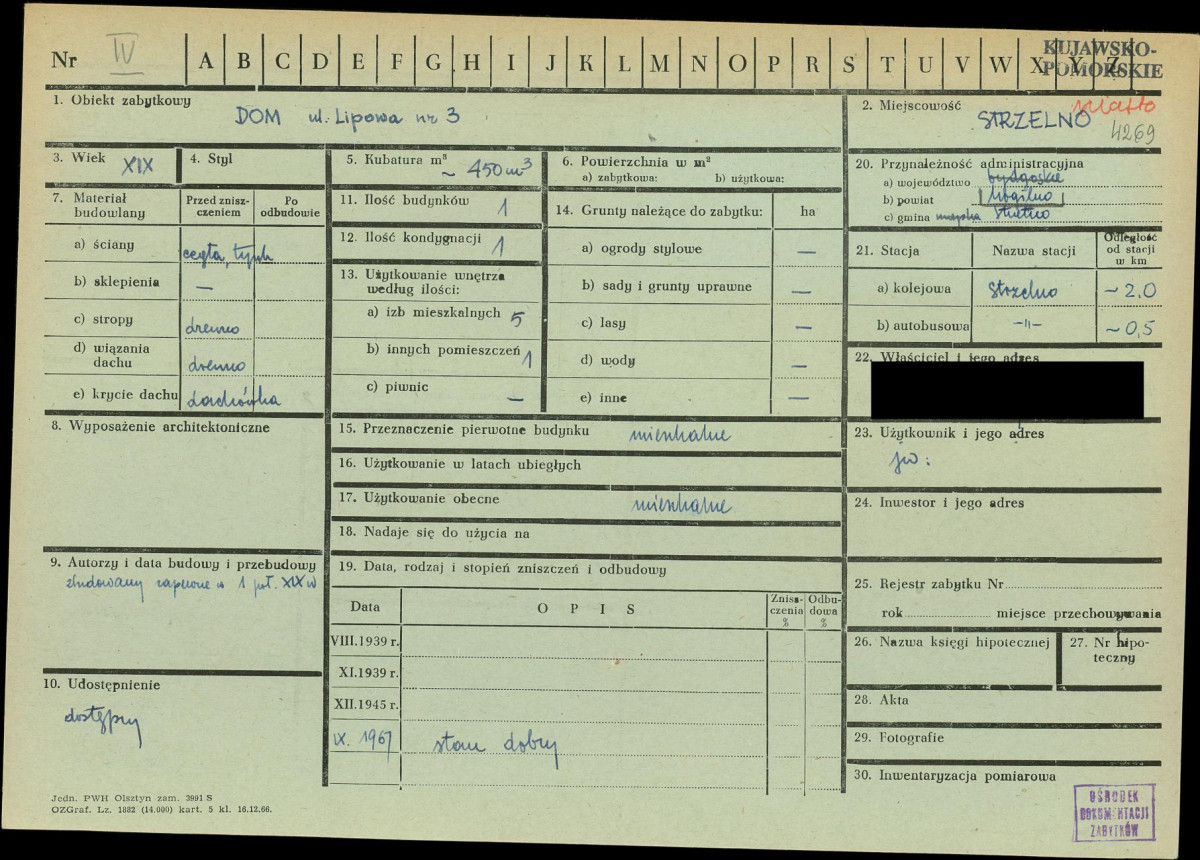 Nr IV A B C D E F G H I J K L M N O P R S T U V W X Y Z
KUJAWSKO-
POMORSKIE
1. Obiekt zabytkowy
DOM ul. Lipowa nr 3
2. Miejscowość
miasto
STRZELNO
4269
3. Wiek XIX
4. Styl
5. Kubatura m³
~ 450 m³
6. Powierzchnia w m²
a) zabytkowa: b) użytkowa:
7. Materiał budowlany
Przed zniszczeniem
Po odbudowie
a) ściany cegła, tynk
b) sklepienia —
c) stropy drewno
d) wiązania dachu drewno
e) krycie dachu dachówka
8. Wyposażenie architektoniczne
9. Autorzy i data budowy i przebudowy
zbudowany zapewne w 1 poł. XIX w
10. Udostępnienie
dostępny
11. Ilość budynków 1
12. Ilość kondygnacji 1
13. Użytkowanie wnętrza
według ilości:
a) izb mieszkalnych 5
b) innych pomieszczeń 1
c) piwnic —
14. Grunty należące do zabytku: ha
a) ogrody stylowe —
b) sady i grunty uprawne —
c) lasy —
d) wody —
e) inne —
15. Przeznaczenie pierwotne budynku mieszkalne
16. Użytkowanie w latach ubiegłych
17. Użytkowanie obecne mieszkalne
18. Nadaje się do użycia na
19. Data, rodzaj i stopień zniszczeń i odbudowy
Data OPIS Zniszczenia % Odbudowa %
VIII.1939 r.
XI.1939 r.
XII.1945 r.
IX. 1967 stan dobry
20. Przynależność administracyjna
a) województwo bydgoskie
b) powiat Mogilno
c) gmina miejska Strzelno
21. Stacja Nazwa stacji Odległość od stacji w km
a) kolejowa Strzelno ~ 2,0
b) autobusowa -"- ~ 0,5
22. Właściciel i jego adres
23. Użytkownik i jego adres
jw:
24. Inwestor i jego adres
25. Rejestr zabytku Nr
rok miejsce przechowywania
26. Nazwa księgi hipotecznej
27. Nr hipoteczny
28. Akta
29. Fotografie
30. Inwentaryzacja pomiarowa
Jedn. PWH Olsztyn zam. 3991 S
OZGraf. Lz. 1882 (14.000) kart. 5 kl. 16.12.66.
OŚRODEK
DOKUMENTACJI
ZABYTKÓW